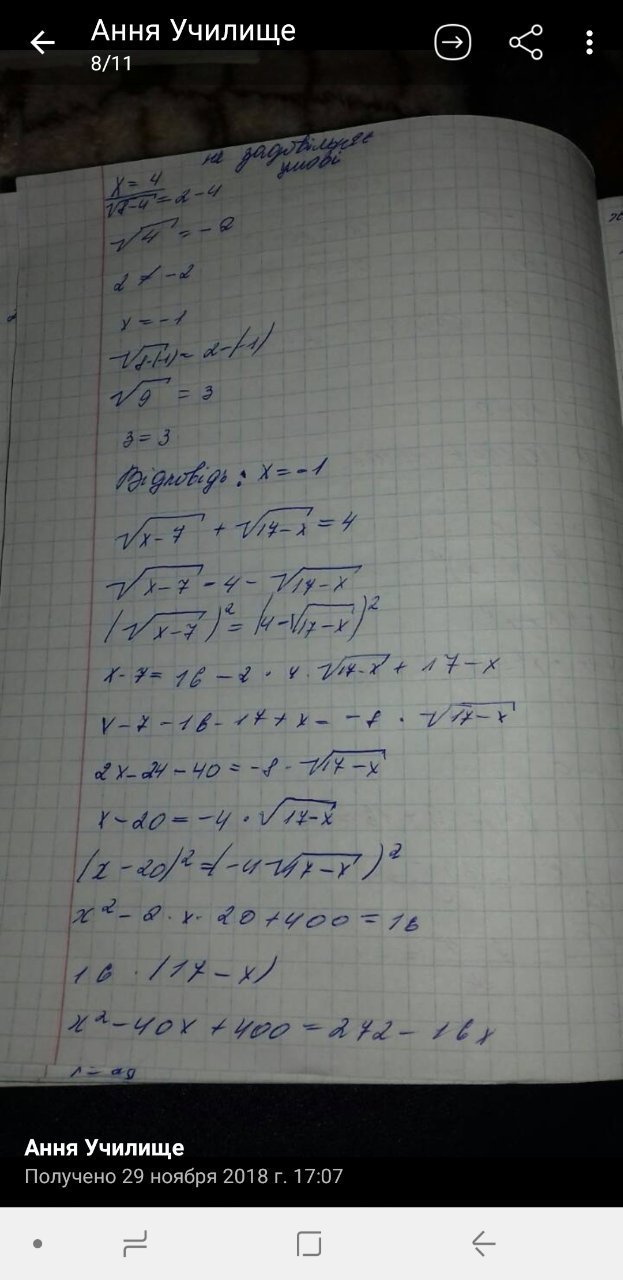 Ання Училище
8/11
не задовільняє
умові
x = 4
√8-4 = 2-4
√4 = -2
2 ≠ -2
x = -1
√8-(-1) = 2-(-1)
√9 = 3
3 = 3
Відповідь: x = -1
√x-7 + √17-x = 4
√x-7 = 4 - √17-x
(√x-7)² = (4-√17-x)²
x-7 = 16 - 2 · 4 · √17-x + 17-x
x-7-16-17+x = -8 · √17-x
2x-24-40 = -8 · √17-x
x-20 = -4 · √17-x
(x-20)² = (-4√17-x)²
x² - 2 · x · 20 + 400 = 16
16 · (17-x)
x² - 40x + 400 = 272 - 16x
Ання Училище
Получено 29 ноября 2018 г. 17:07